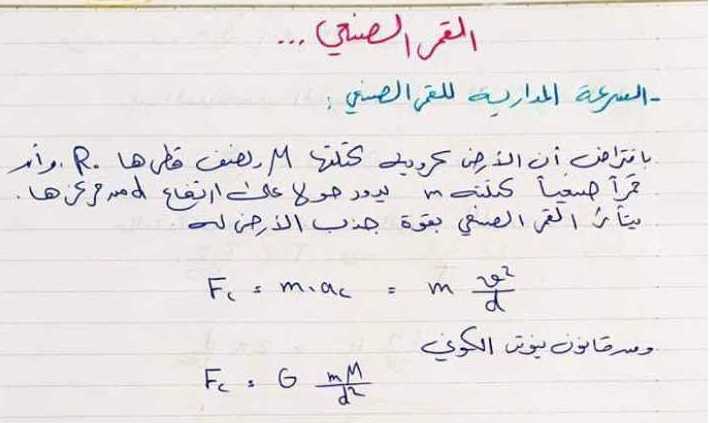 القمر الصنعي ...
- السرعة المدارية للقمر الصنعي :
بافتراض أن الأرض كروية كتلتها M ونصف قطرها R. وأن
قمراً صنعياً كتلته m يدور حولها على ارتفاع d من مركزها.
يتأثر القمر الصنعي بقوة جذب الأرض له
F꜀ = m.a꜀ = m v²/d
ومن قانون نيوتن الكوني
F꜀ = G mM/d²